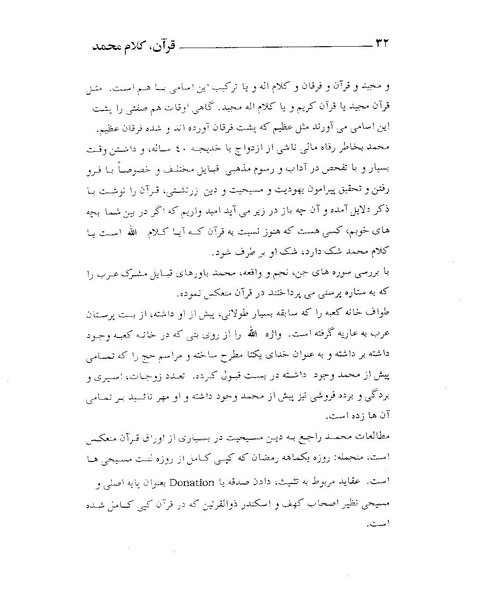 ۳۲ قرآن، کلام محمد
و مجید و قرآن و فرقان و کلام اله و یا ترکیب این اسامی با هم است. مثل
قرآن مجید یا قرآن کریم و یا کلام اله مجید. گاهی اوقات هم صفتی را پشت
این اسامی می آورند مثل عظیم که پشت فرقان آورده اند و شده فرقان عظیم.
محمد بخاطر رفاه مالی ناشی از ازدواج با خدیجه ۴۰ ساله، و داشتن وقت
بسیار و با تفحص در آداب و رسوم مذهبی قبایل مختلف و خصوصاً با فرو
رفتن و تحقیق پیرامون یهودیت و مسیحیت و دین زرتشتی، قرآن را نوشت با
ذکر دلایل آمده و آن چه باز در زیر می آید امید واریم که اگر در بین شما بچه
های خوبم، کسی هست که هنوز نسبت به قرآن که آیا کلام الله است یا
کلام محمد شک دارد، شک او بر طرف شود.
با بررسی سوره های جن، نجم و واقعه، محمد باورهای قبایل مشرک عرب را
که به ستاره پرستی می پرداختند در قرآن منعکس نموده.
طواف خانه کعبه را که سابقه بسیار طولانی، پیش از او داشته، از بت پرستان
عرب به عاریه گرفته است. واژه الله را از روی بتی که در خانه کعبه وجود
داشته بر داشته و به عنوان خدای یکتا مطرح ساخته و مراسم حج را که تمامی
پیش از محمد وجود داشته در بست قبول کرده. تعدد زوجات، اسیری و
بردگی و برده فروشی نیز پیش از محمد وجود داشته و او مهر تائید بر تمامی
آن ها زده است.
مطالعات محمد راجع به دین مسیحیت در بسیاری از اوراق قرآن منعکس
است، منجمله: روزه یکماهه رمضان که کپی کامل از روزه لنت مسیحی ها
است. عقاید مربوط به تثیث، دادن صدقه یا Donation بعنوان پایه اصلی و
مسیحی نظیر اصحاب کهف و اسکندر ذوالقرنین که در قرآن کپی کامل شده
است.